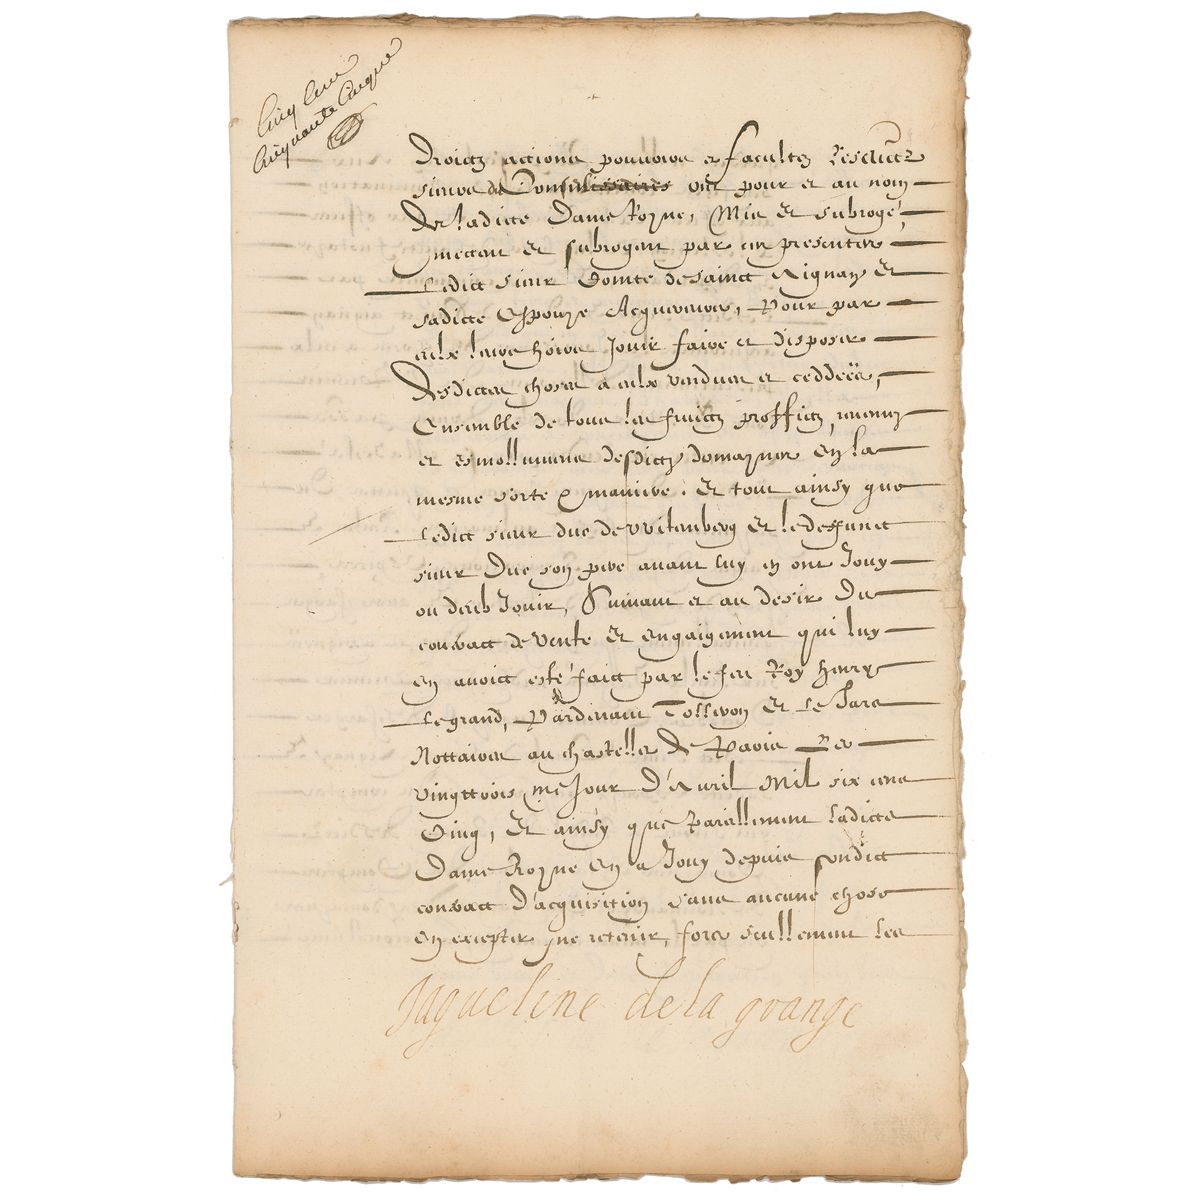 Cinq cens
cinquante cinque
Droictz actions pouvoirs et facultez Lesdictz
sieurs de Com̶m̶issaires ont pour et au nom
de ladicte Dame Royne, Mis et subrogé,
mectant et subrogant par ces presentes
Ledict sieur Comte de sainct Aignan et
sadicte Espouze Acquereurs, Pour par
eulx leurs hoirs Jouir faire et disposer
desdictes choses a eulx vendues et ceddeës,
Ensemble de tous les fruictz proffictz, revenuz
et esmollumens desdictz domaynes en la
mesme sorte & maniere, et tout ainsy que
Ledict sieur duc de Wirtemberg et le deffunct
sieur Duc son pere avant luy en ont Jouy
ou deub Jouir, Suivant et au desir du
contract de vente et engaigement qui luy
en avoict esté faict par le feu Roy Henry
Le grand, Pardevant Tolleron et Le
Nottaires au chastellet de Paris Le
vingttrois me Jour d'Avril Mil six cens
Cinq, Et ainsy que Pareillement ladicte
Dame Royne en a Jouy depuis sondict
contract d'acquisition sans aucune chose
en excepter ne retenir, fors seullement les
Jaqueline de la grange